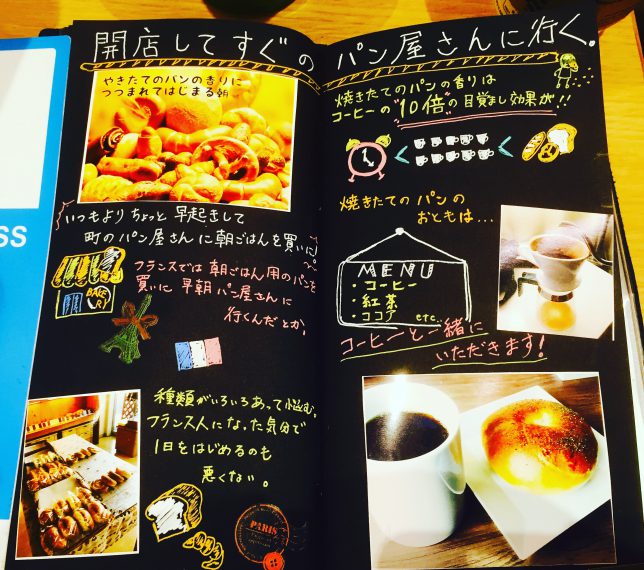 開店してすぐの パン屋さんに行く。
やきたてのパンの香りに
つつまれてはじまる朝
いつもよりちょっと早起きして
町のパン屋さんに朝ごはんを買いに
フランスでは朝ごはん用のパンを
買いに早朝パン屋さんに
行くんだとか。
BAKERY
種類がいろいろあって悩む。
フランス人になった気分で
1日をはじめるのも
悪くない。
PARIS
焼きたてのパンの香りは
コーヒーの"10倍"の目覚まし効果が!!
焼きたてのパンの
おともは...
MENU
・コーヒー
・紅茶
・ココア etc.
コーヒーと一緒に
いただきます!
SS